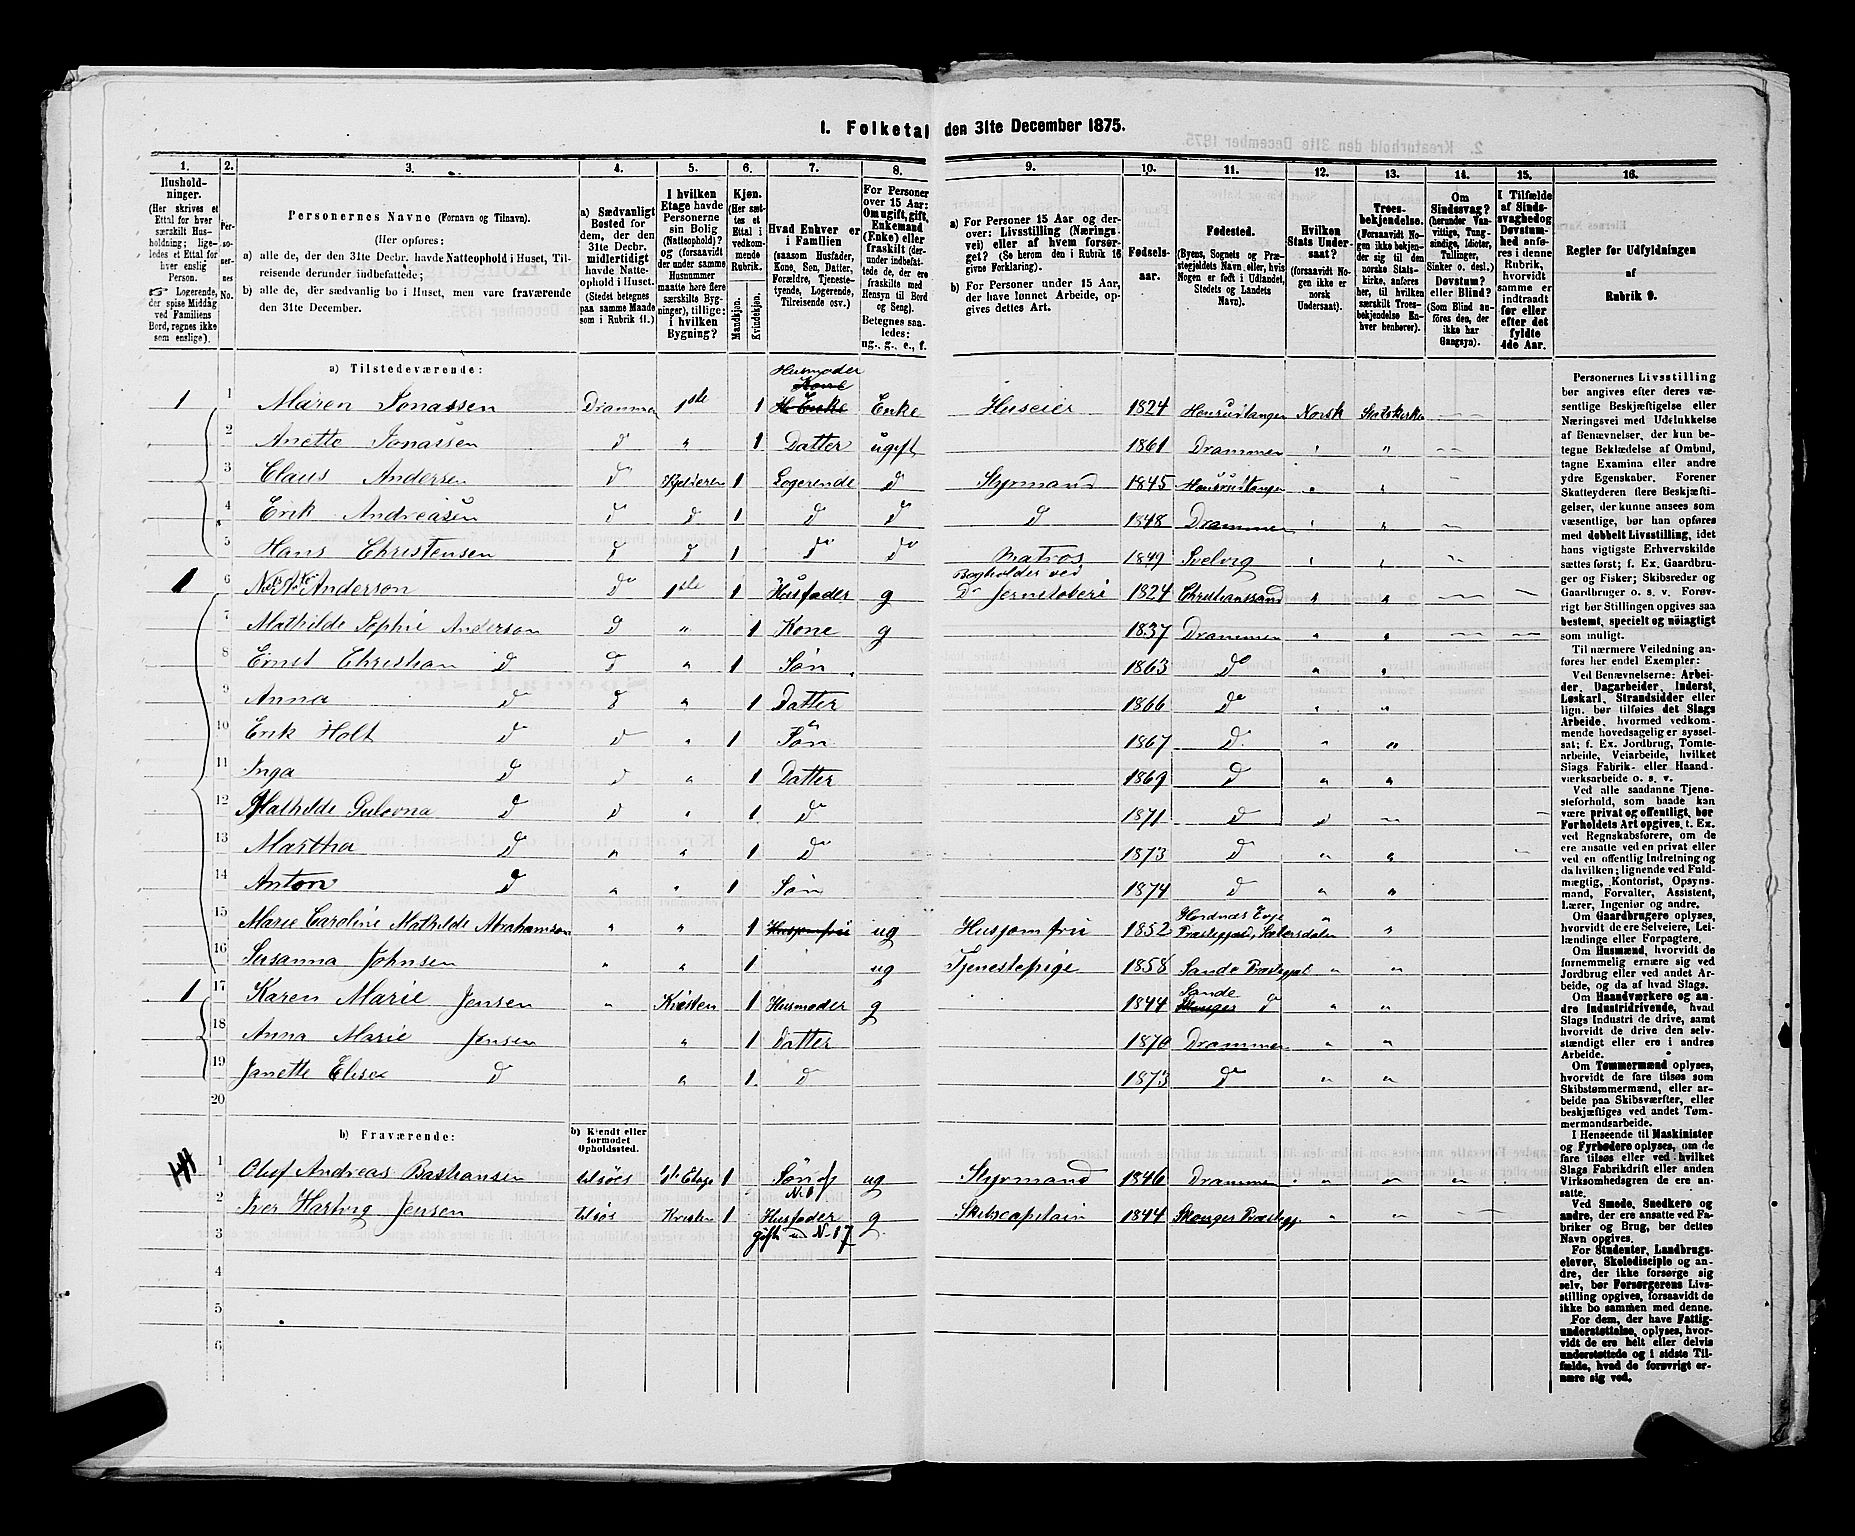 I. Folketal den 31te December 1875.
1. 2. 3. 4. 5. 6. 7. 8. 9. 10. 11. 12. 13. 14. 15. 16.
Husholdninger. (Her skrives et Ettal for hver særskilt Husholdning; ligeledes et Ettal for hver enslig Person. Logerende, der spise Middag ved Familiens Bord, regnes ikke som enslige).
Personernes No.
Personernes Navne (Fornavn og Tilnavn).
(Her opføres:
a) alle de, der den 31te Decbr. havde Natteophold i Huset, Tilreisende derunder indbefattede;
b) alle de, der sædvanlig bo i Huset, men vare fraværende den 31te December.
a) Sædvanligt Bosted for dem, der den 31te Decbr. midlertidigt havde Natteophold i Huset. (Stedet betegnes paa samme Maade som i Rubrik 11.)
I hvilken Etage havde Personerne sin Bolig (Natteophold)? og (forsaavidt der under samme Husnummer maatte høre flere særskilte Bygninger), tillige: i hvilken Bygning?
Kjøn. (Her sættes et Ettal i vedkommende Rubrik. Mandkjøn. Kvindekjøn.
Hvad Enhver er i Familien (saasom Husfader, Kone, Søn, Datter, Forældre, Tjenestetyende, Logerende, Tilreisende osv.)
For Personer over 15 Aar: Om ugift, gift, Enkemand (Enke) eller fraskilt (derunder indbefattede de, der ere fraskilte med Hensyn til Bord og Seng). Betegnes saaledes: ug., g., e., f.
a) For Personer 15 Aar og derover: Livsstilling (Næringsvei) eller af hvem forsørget? (Se herom den i Rubrik 16 givne Forklaring).
b) For Personer under 15 Aar, der have lønnet Arbeide, opgives dettes Art.
Fødselsaar.
Fødested. (Byens, Sognets og Præstegjeldets Navn, eller, hvis Nogen er født i Udlandet, Stedets og Landets Navn).
Hvilken Stats Undersaat? (forsaavidt Nogen ikke er norsk Undersaat).
Troesbekjendelse. (Forsaavidt Nogen ikke bekjender sig til den norske Statskirke, anføres her, til hvilken særskilt Troesbekjendelse Enhver benhører).
Om Sindssvag? (herunder Vanvittige, Tungsindige, Idioter, Tullinger, Sinker o. desl.) Døvstum? eller Blind? (Som Blind anføres den, der ikke har Gangsyn).
I Tilfælde af Sindssvaghed og Døvstumhed anføres i denne Rubrik, hvorvidt samme er indtraadt før eller efter det fyldte 4de Aar.
Regler for Udfyldningen af Rubrik 9.
a) Tilstedeværende:
1 1 Maren Jonassen Drammen 1ste 1 Husmoder Enke Huseier 1824 Norsk Statskirke
2 Anette Jonassen do " 1 Datter ugift 1861 Drammen " "
3 Claus Andersen do Kjelderen 1 Logerende do Styrmand 1845 " "
4 Erik Andreasen do do 1 do do do 1848 Drammen " "
5 Hans Christensen do do 1 do do Matros 1849 Svelvig " "
1 6 Anderson do 1ste 1 Husfader g Bogholder ved do Jernstøberi 1824 Christianssand " "
7 Mathilde Sophie Anderson do " 1 Kone g 1837 Drammen " "
8 Ernst Christian do do " 1 Søn 1863 do " "
9 Anna do do " 1 Datter 1866 do " "
10 Erik Holt do do " 1 Søn 1867 do " "
11 Inga do do " 1 Datter 1869 do " "
12 Mathilde Gulovna do do " 1 do 1871 do do "
13 Martha do " " 1 do 1873 do " "
14 Anton do " " 1 Søn 1874 do " "
15 Marie Caroline Mathilde Abrahamson " " 1 Husjomfru ug Husjomfru 1852 Hordnæs Evje Præstegjæld, Sætersdalen " "
16 Susanna Johnsen " " 1 ug Tjenestepige 1858 Sande Præstegjæl " "
1 17 Karen Marie Jensen " Kvisten 1 Husmoder g 1844 Sande do " "
18 Anna Marie Jensen " 1 Datter 1870 Drammen " "
19 Janette Elise do " 1 do 1873 do " "
20
b) Fraværende:
b) Kjendt eller formodet Opholdssted.
1 Oluf Andreas Basthansen tilsøes 1ste Etage 1 Søn af No 1 ug Styrmand 1846 Drammen " "
2 Iver Hartvig Jensen tilsøs Kvisten 1 Husfader gift m No 17 g Skibscapitain 1844 Skouger Præstegj " "
3
4
5
6
Personernes Livsstilling bør angives efter deres væsentlige Beskjæftigelse eller Næringsvei med Udelukkelse af Benævnelser, der kun betegne Beklædelse af Ombud, tagne Examina eller andre ydre Egenskaber. Forener Skatteyderen flere Beskjæftigelser, der kunne ansees som væsentlige, bør han opføres med dobbelt Livsstilling, idet hans vigtigste Erhvervskilde sættes først; f. Ex. Gaardbruger og Fisker; Skibsreder og Gaardbruger o. s. v. Forøvrigt bør Stillingen opgives saa bestemt, specielt og nøiagtigt som muligt.
Til nærmere Veiledning anføres her endel Exempler:
Ved Benævnelserne: Arbeider, Dagarbeider, Inderst, Løskarl, Strandsidder eller lign. bør tilføies det Slags Arbeide, hvormed vedkommende hovedsagelig er sysselsat; f. Ex. Jordbrug, Tomtearbeide, Veiarbeide, hvilket Slags Fabrik- eller Haandværksarbeide o. s. v.
Ved alle saadanne Tjenesteforhold, som baade kan være privat og offentligt, bør Forholdets Art opgives, t. Ex. ved Regnskabsførere, om de ere ansatte ved en privat eller ved en offentlig Indretning og da hvilken; lignende ved Fuldmægtig, Kontorist, Opsynsmand, Forvalter, Assistent, Lærer, Ingeniør og andre.
Om Gaardbrugere oplyses, hvorvidt de ere Selveiere, Leilændinge eller Forpagtere.
Om Husmænd, hvorvidt de fornemmelig ernære sig ved Jordbrug eller ved andet Arbeide, og da af hvad Slags.
Om Haandværkere og andre Industridrivende, hvad Slags Industri de drive, samt hvorvidt de drive den selvstændigt eller ere i andres Arbeide.
Om Tømmermænd oplyses, hvorvidt de fare tilsøs som Skibstømmermænd, eller arbeide paa Skibsværfter, eller beskjæftiges ved andet Tømmermandsarbeide.
I Henseende til Maskinister og Fyrbødere oplyses, om de fare tilsøs eller ved hvilket Slags Fabrikdrift eller anden Virksomhedsgren de ere ansatte.
Ved Smede, Snedkere og andre, der ere ansatte ved Fabriker og Brug, bør dettes Navn opgives.
For Studenter, Landbrugselever, Skoledisciple og andre, der ikke forsørge sig selv, bør Forsørgerens Livsstilling opgives, forsaavidt de ikke bo sammen med denne.
For dem, der have Fattigunderstøttelse, oplyses, hvorvidt de ere helt eller delvis understøttede og i sidste Tilfælde, hvad de forøvrigt ernære sig ved.